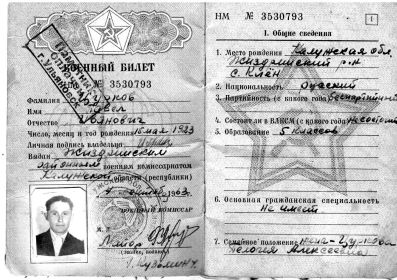 ВОЕННЫЙ БИЛЕТ
№ 3530793
Фамилия
Имя Павел
Отчество Иванович
Число, месяц и год рождения 16 мая 1923
Личная подпись владельца
Выдан Жиздринским
районным военным комиссариатом
Калужской области (республики)
1963 г.
ВОЕННЫЙ КОМИССАР
М. П.
майор
НМ № 3530793
1
I. Общие сведения
1. Место рождения Калужская обл.
Жиздринский р-н
с. Клён
2. Национальность Русский
3. Партийность (с какого года) беспартийный
4. Состоит ли в ВЛКСМ (с какого года) не состоит
5. Образование 5 классов
6. Основная гражданская специальность
Не имеет
7. Семейное положение жена-
Пелагея Алексеевна